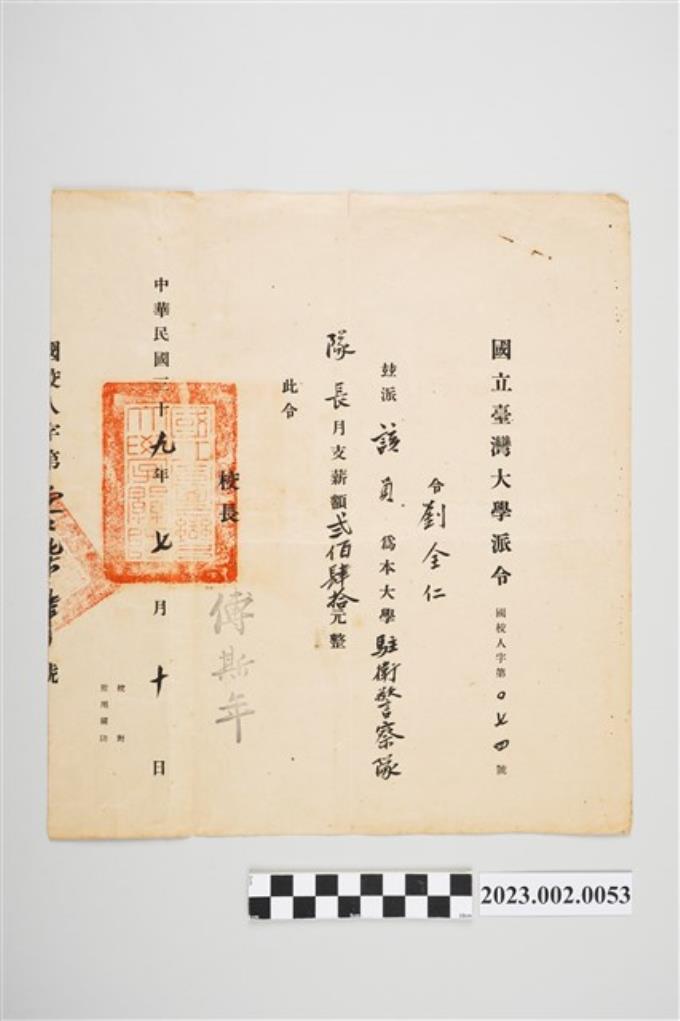 國立臺灣大學派令 國校人字第〇七四號
令劉全仁
茲派該員為本大學駐衛警察隊
隊長月支薪額貳佰肆拾元整
此令
校長 傅斯年
中華民國三十九年七月十日
校對
監用國印
國校人字第
號
2023.002.0053